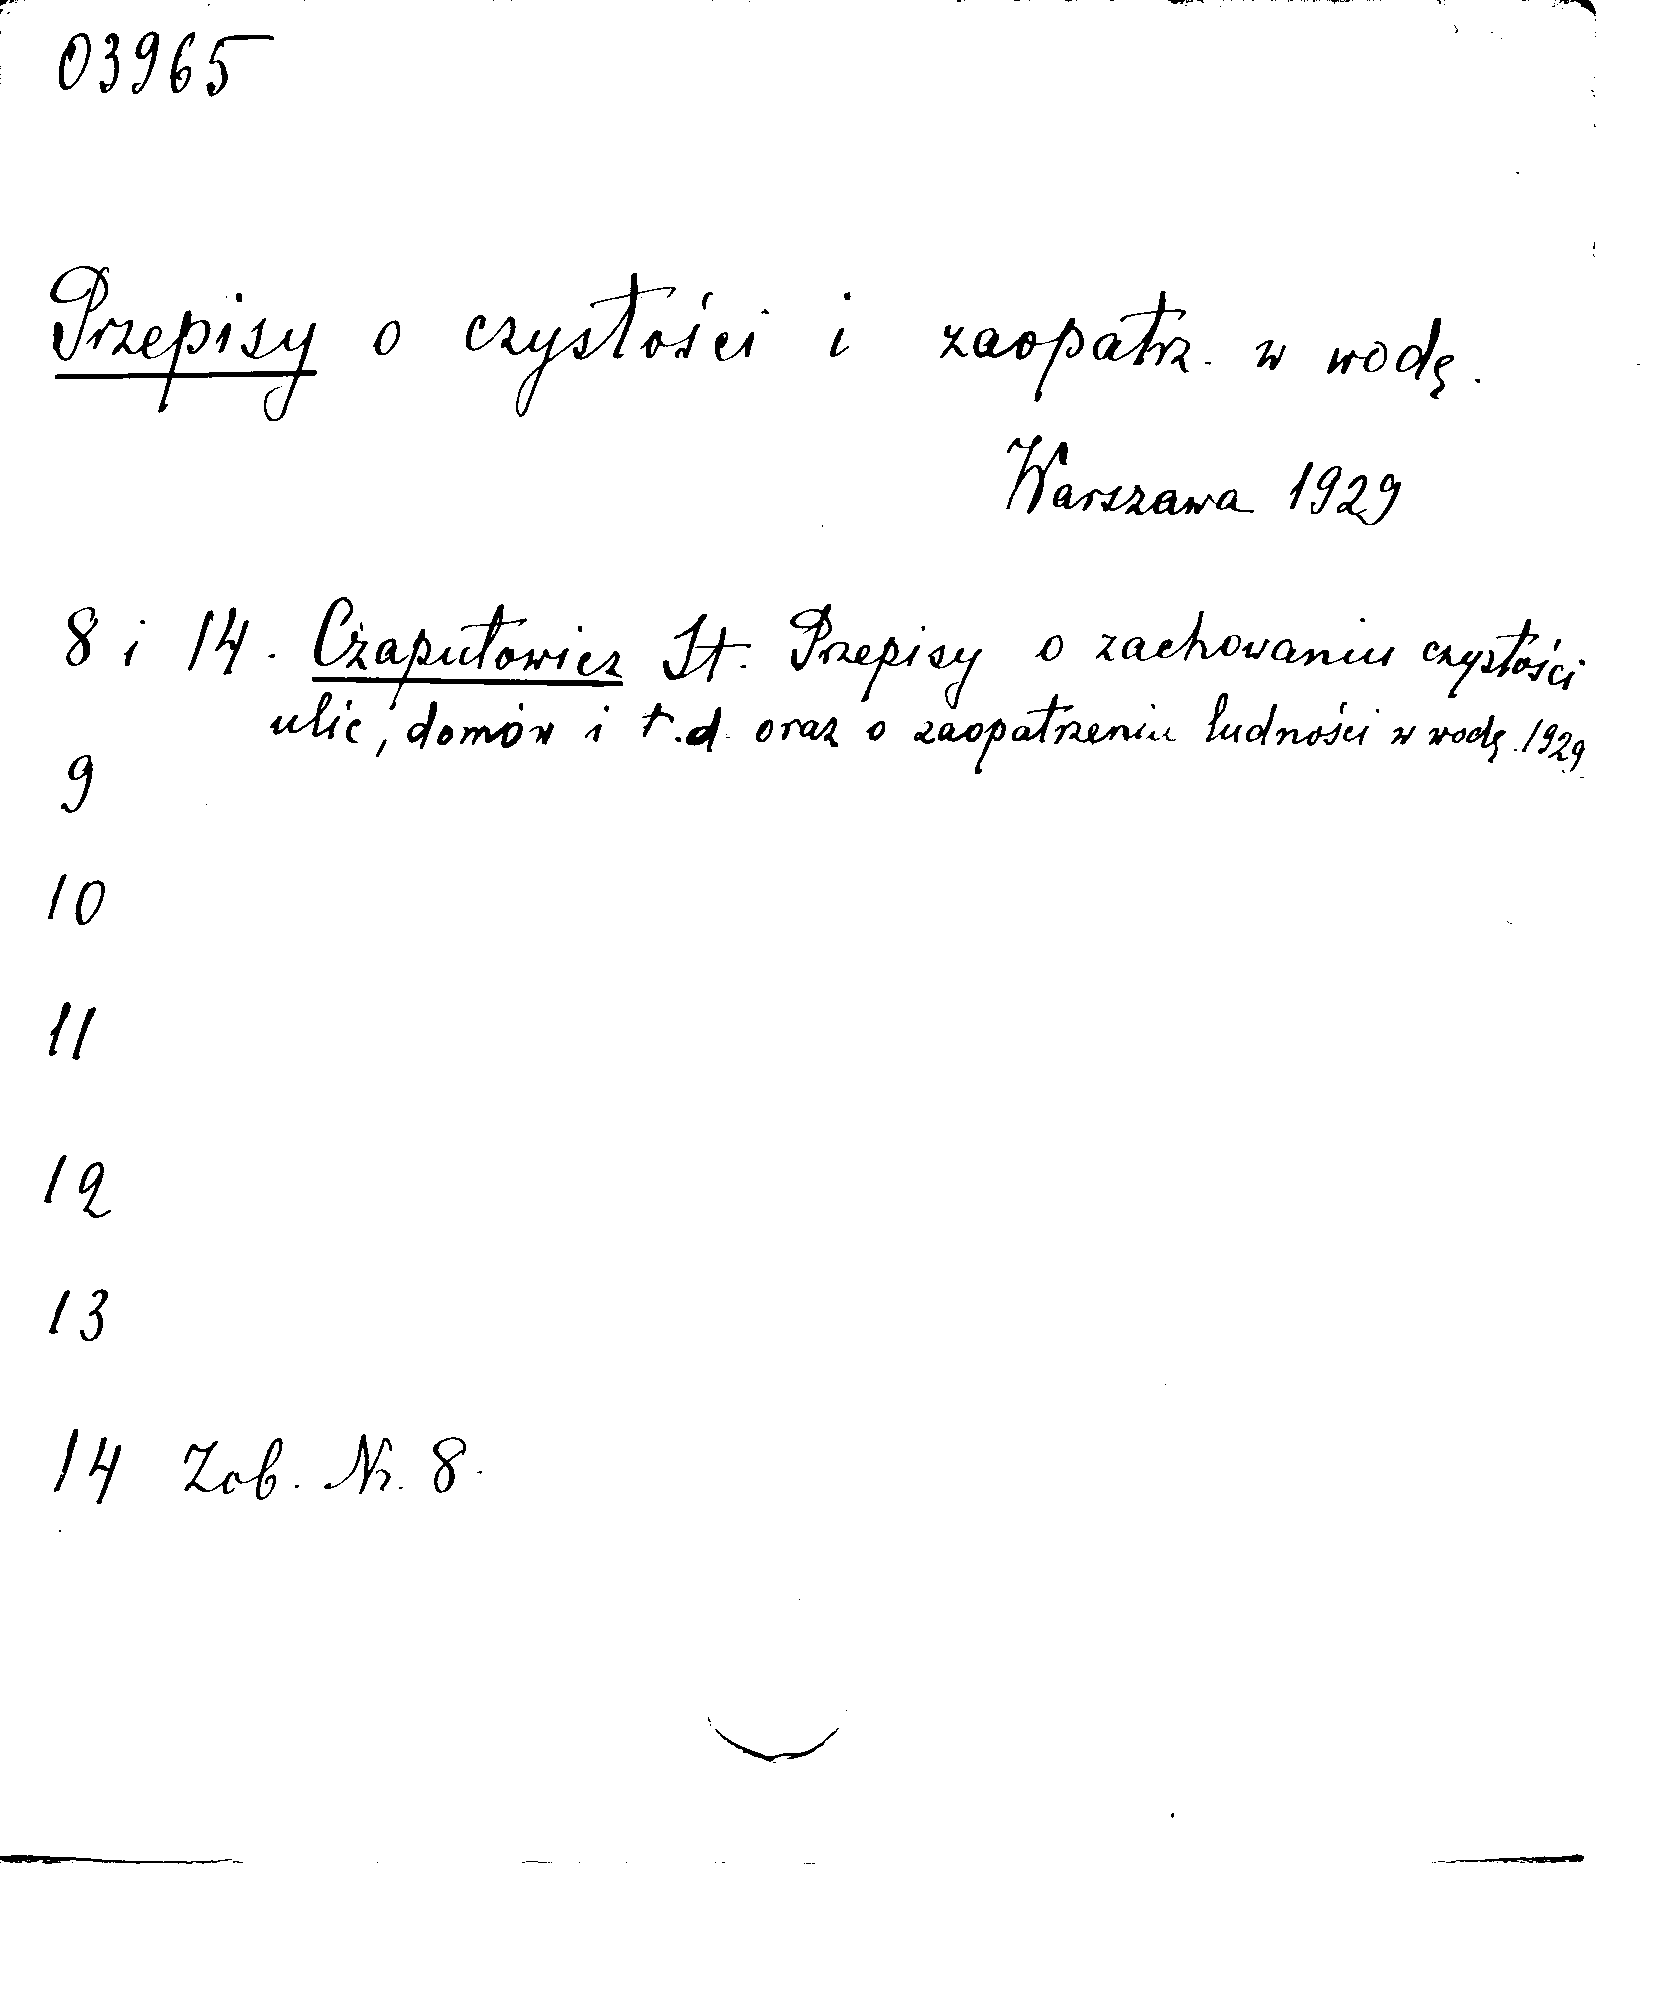 03965
Przepisy o czystości i zaopatrz. w wodę.
Warszawa 1929
8 i 14. Czaputowicz St. Przepisy o zachowaniu czystości
ulic, domów i t.d. oraz o zaopatrzeniu ludności w wodę. 1929
9
10
11
12
13
14 Zob. Nr. 8.